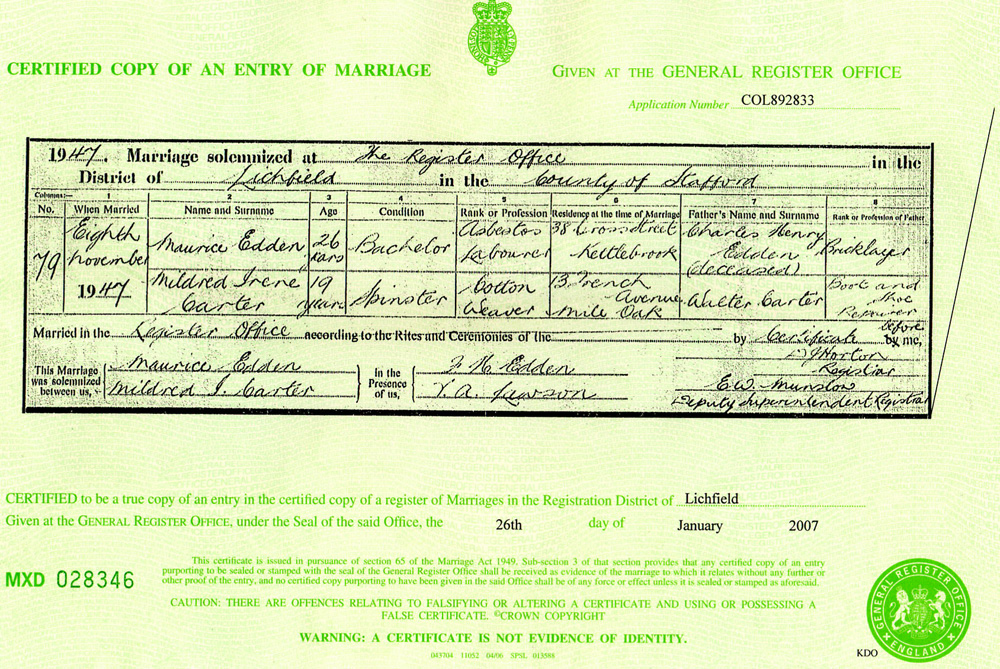 CERTIFIED COPY OF AN ENTRY OF MARRIAGE
GIVEN AT THE GENERAL REGISTER OFFICE
Application Number COL892833
1947. Marriage solemnized at The Register Office in the
District of Lichfield in the County of Stafford
Columns:— 1 2 3 4 5 6 7 8
No. When Married Name and Surname Age Condition Rank or Profession Residence at the time of Marriage Father's Name and Surname Rank or Profession of Father
79 Eighth November 1947 Maurice Edden 26 years Bachelor Asbestos Labourer 38 Cross Street Kettlebrook Charles Henry Edden (deceased) Bricklayer
Mildred Irene Carter 19 years Spinster Cotton Weaver 13 French Avenue Mile Oak Walter Carter Boot and Shoe Repairer
Married in the Register Office according to the Rites and Ceremonies of the by Certificate before by me,
This Marriage was solemnized between us, Maurice Edden Mildred I. Carter in the Presence of us, F H Edden
Horton Registrar
E.W. Munslow
Deputy Superintendent Registrar
CERTIFIED to be a true copy of an entry in the certified copy of a register of Marriages in the Registration District of Lichfield
Given at the GENERAL REGISTER OFFICE, under the Seal of the said Office, the 26th day of January 2007
This certificate is issued in pursuance of section 65 of the Marriage Act 1949. Sub-section 3 of that section provides that any certified copy of an entry
purporting to be sealed or stamped with the seal of the General Register Office shall be received as evidence of the marriage to which it relates without any further or
other proof of the entry, and no certified copy purporting to have been given in the said Office shall be of any force or effect unless it is sealed or stamped as aforesaid.
MXD 028346
CAUTION: THERE ARE OFFENCES RELATING TO FALSIFYING OR ALTERING A CERTIFICATE AND USING OR POSSESSING A
FALSE CERTIFICATE. ©CROWN COPYRIGHT
WARNING: A CERTIFICATE IS NOT EVIDENCE OF IDENTITY.
043704 11052 04/06 SPSL 013588
GENERAL REGISTER OFFICE
ENGLAND
KDO